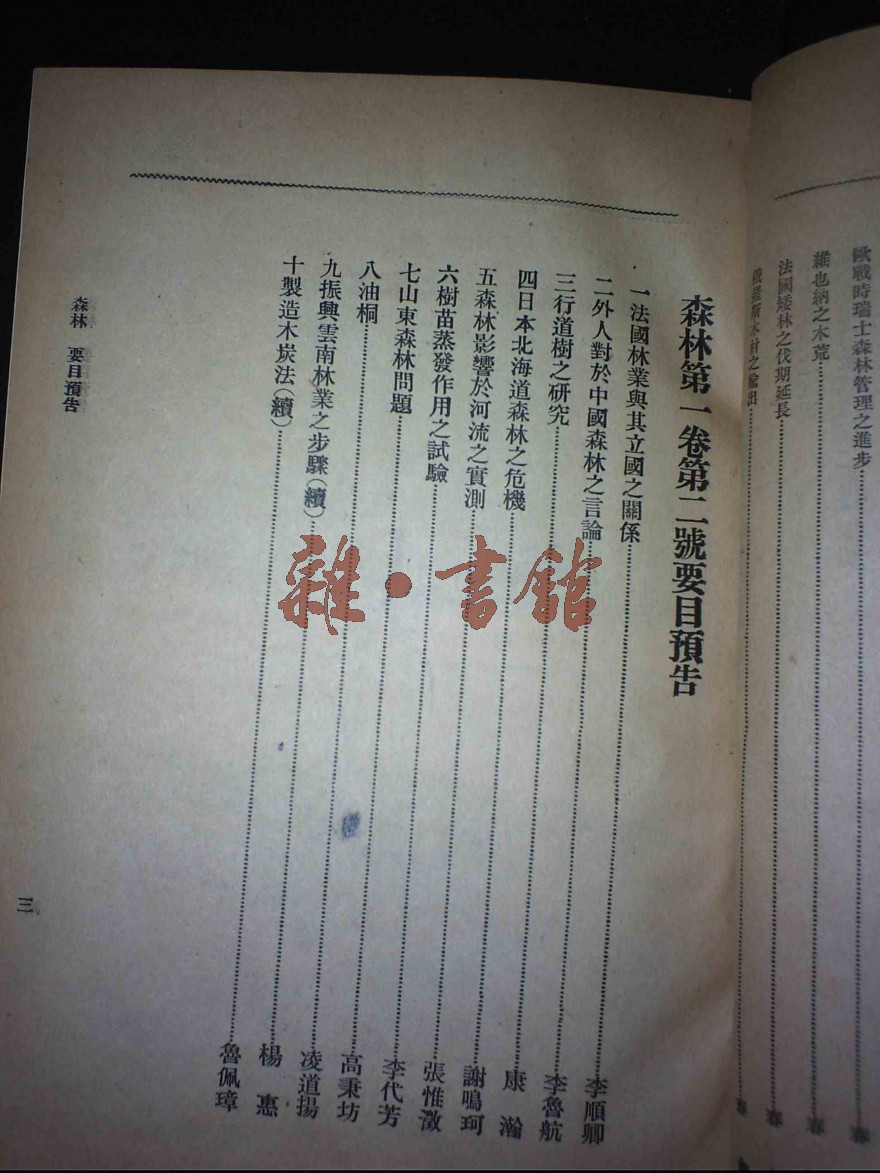 歐戰時瑞士森林管理之進步
維也納之木荒
法國矮林之伐期延長
俄羅斯木材之輸出
森林第一卷第二號要目預告
一法國林業與其立國之關係 李順卿
二外人對於中國森林之言論 李魯航
三行道樹之研究 康瀚
四日本北海道森林之危機 謝鳴珂
五森林影響於河流之實測 張惟澂
六樹苗蒸發作用之試驗 李代芳
七山東森林問題 高秉坊
八油桐 凌道揚
九振興雲南林業之步驟(續) 楊惠
十製造木炭法(續) 魯佩璋
森林 要目預告
三
雜·書館